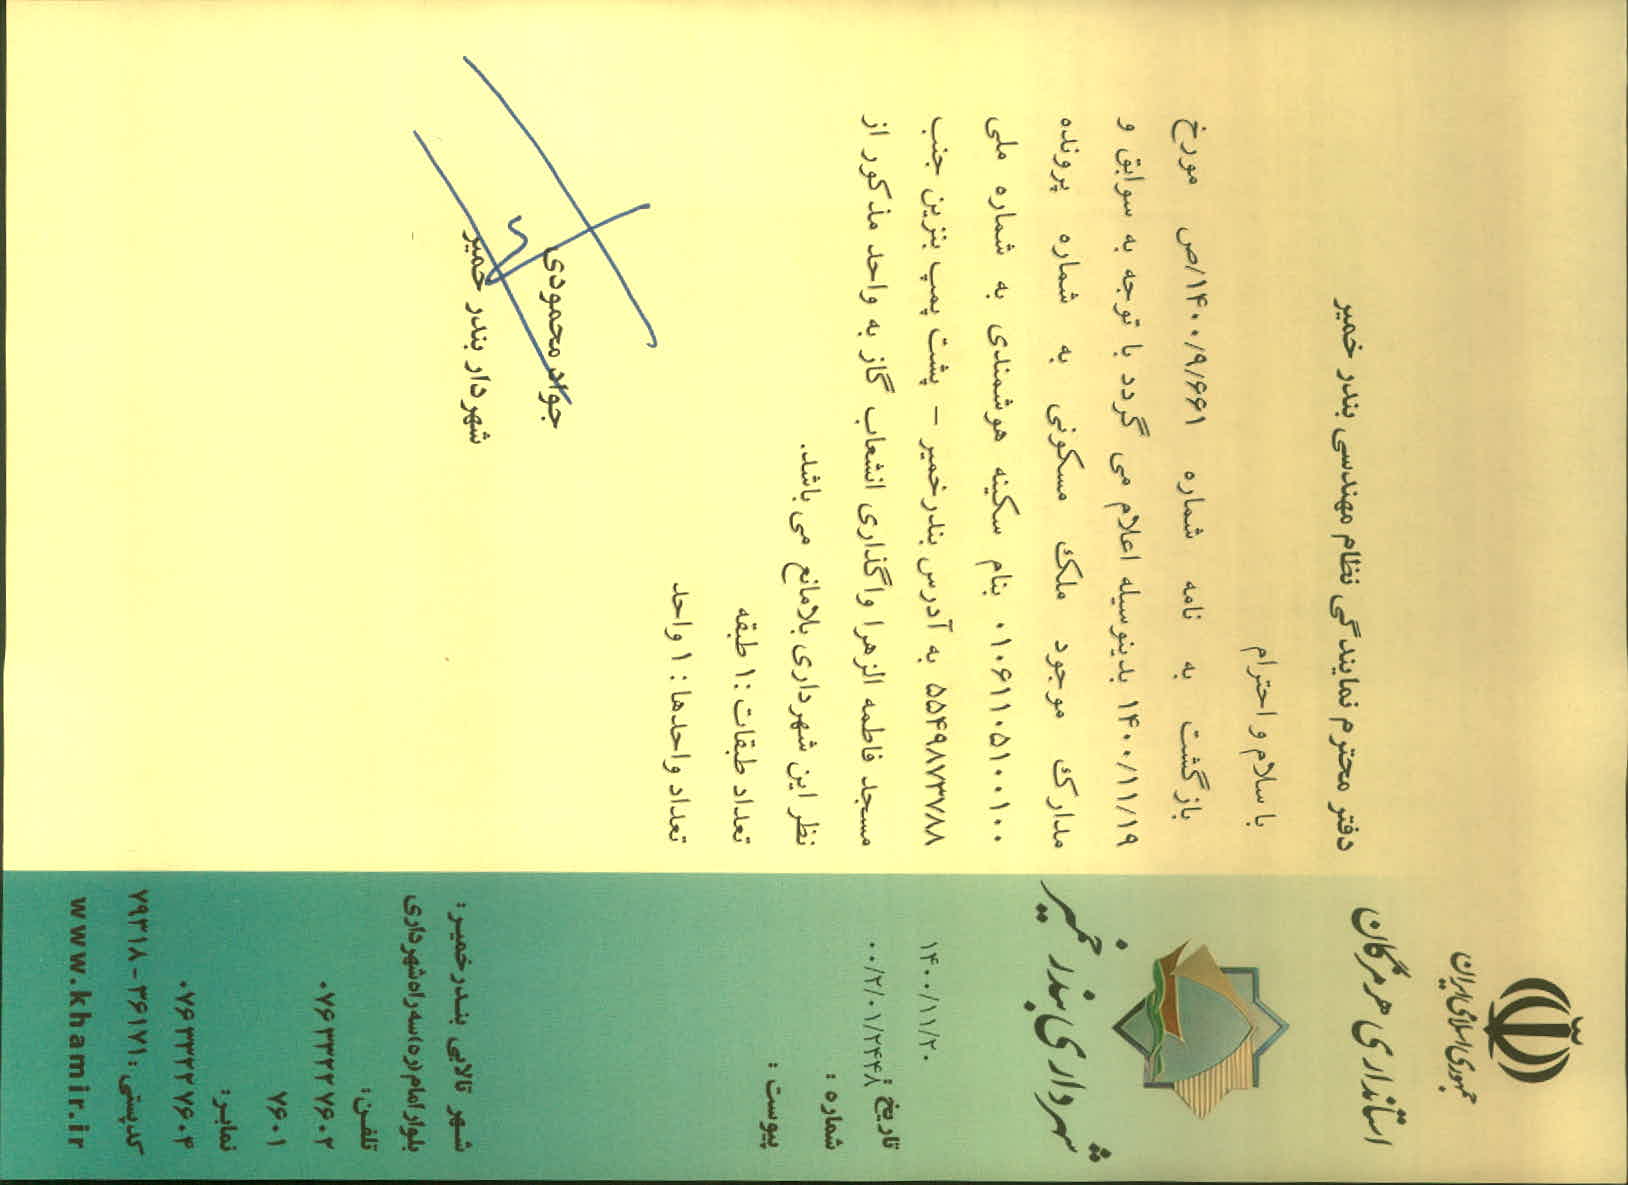 جمهوری اسلامی ایران
استانداری هرمزگان
شهرداری بندر خمیر
۱۴۰۰/۱۱/۲۰
۰۰/۲/۰۱/۲۴۴۸
تاریخ :
شماره :
پیوست :
دفتر محترم نمایندگی نظام مهندسی بندر خمیر
با سلام و احترام
بازگشت به نامه شماره ۱۴۰۰/۹/۶۶۱/ص مورخ
۱۴۰۰/۱۱/۱۹ بدینوسیله اعلام می گردد با توجه به سوابق و
مدارک موجود ملک مسکونی به شماره پرونده
۰۱۰۶۱۱۰۵۱۰۰۱۰۰ بنام سکینه هوشمندی به شماره ملی
۵۵۴۹۸۷۳۷۸۸ به آدرس بندرخمیر – پشت پمپ بنزین جنب
مسجد فاطمه الزهرا واگذاری انشعاب گاز به واحد مذکور از
نظر این شهرداری بلامانع می باشد.
تعداد طبقات :۱ طبقه
تعداد واحدها : ۱ واحد
جواد محمودی
شهردار بندر خمیر
شهر تالابی بندرخمیر:
بلوار امام (ره) سه راه شهرداری
تلفن:
۰۷۶۳۳۲۲۷۶۰۲
۷۶۰۱
نمابر:
۰۷۶۳۳۲۲۷۶۰۴
کدپستی: ۳۶۱۷۱-۷۹۳۱۸
www.khamir.ir